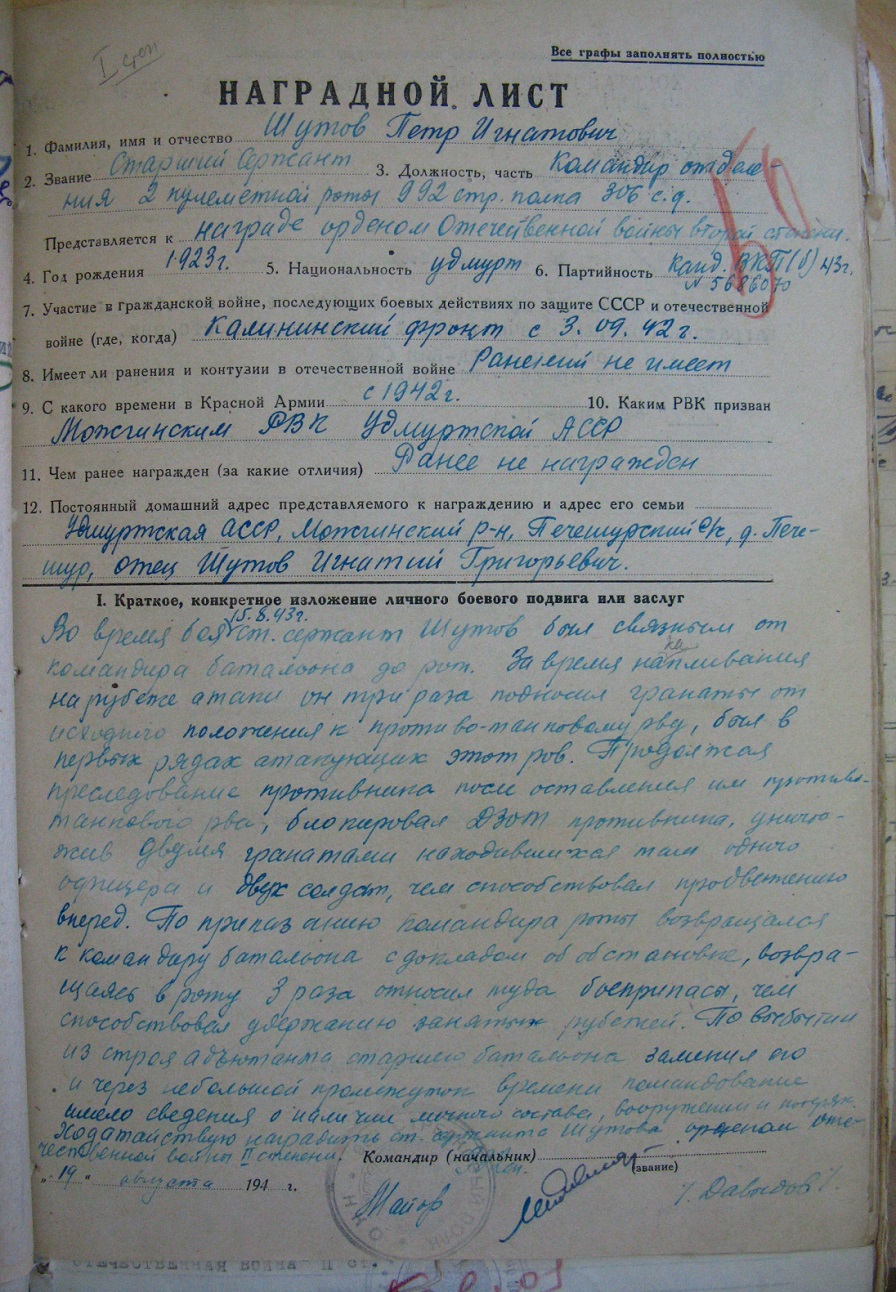 I
Все графы заполнять полностью
НАГРАДНОЙ ЛИСТ
1. Фамилия, имя и отчество Шутов Петр Игнатович
2. Звание Старший Сержант 3. Должность, часть Командир отделе-
ния 2 пулеметной роты 992 стр. полка 306 с.д.
Представляется к награде орденом Отечественной войны второй степени.
4. Год рождения 1923г. 5. Национальность удмурт 6. Партийность канд. ВКП(б) 43г.
№ 5686070
7. Участие в гражданской войне, последующих боевых действиях по защите СССР и отечественной
войне (где, когда) Калининский фронт с 3.09.42 г.
8. Имеет ли ранения и контузии в отечественной войне Ранений не имеет
9. С какого времени в Красной Армии с 1942 г. 10. Каким РВК призван
Можгинским РВК Удмуртской АССР
11. Чем ранее награжден (за какие отличия) Ранее не награжден
12. Постоянный домашний адрес представляемого к награждению и адрес его семьи
Удмуртская АССР, Можгинский р-н, Печешурский с/с, д. Пече-
шур, отец Шутов Игнатий Григорьевич.
I. Краткое, конкретное изложение личного боевого подвига или заслуг
15.8.43г.
Во время боя ст. сержант Шутов был связным от
ка
командира батальона до рот. За время напливания
на рубеже атаки он три раза подносил гранаты от
исходного положения к противо-танковому рву, был в
первых рядах атакующих этот ров. Продолжая
преследование противника после оставления им противо-
танкового рва, блокировал ДЗОТ противника, уничто-
жив двумя гранатами находившихся там одного
офицера и двух солдат, чем способствовал продвижению
вперед. По приказанию командира роты возвращался
к командиру батальона с докладом об обстановке, возвра-
щаясь в роту 3 раза относил туда боеприпасы, чем
способствовал удержанию занятых рубежей. По выбытии
из строя адъютанта старшего батальона заменил его
и через небольшой промежуток времени командование
имело сведения о наличии личного состава, вооружении и потерях.
Ходатайствую наградить ст. сержанта Шутова орденом Оте-
чественной войны II степени. Командир (начальник)
(звание)
„ 19 “ августа 194 г.
Майор
/. Давыдов /.